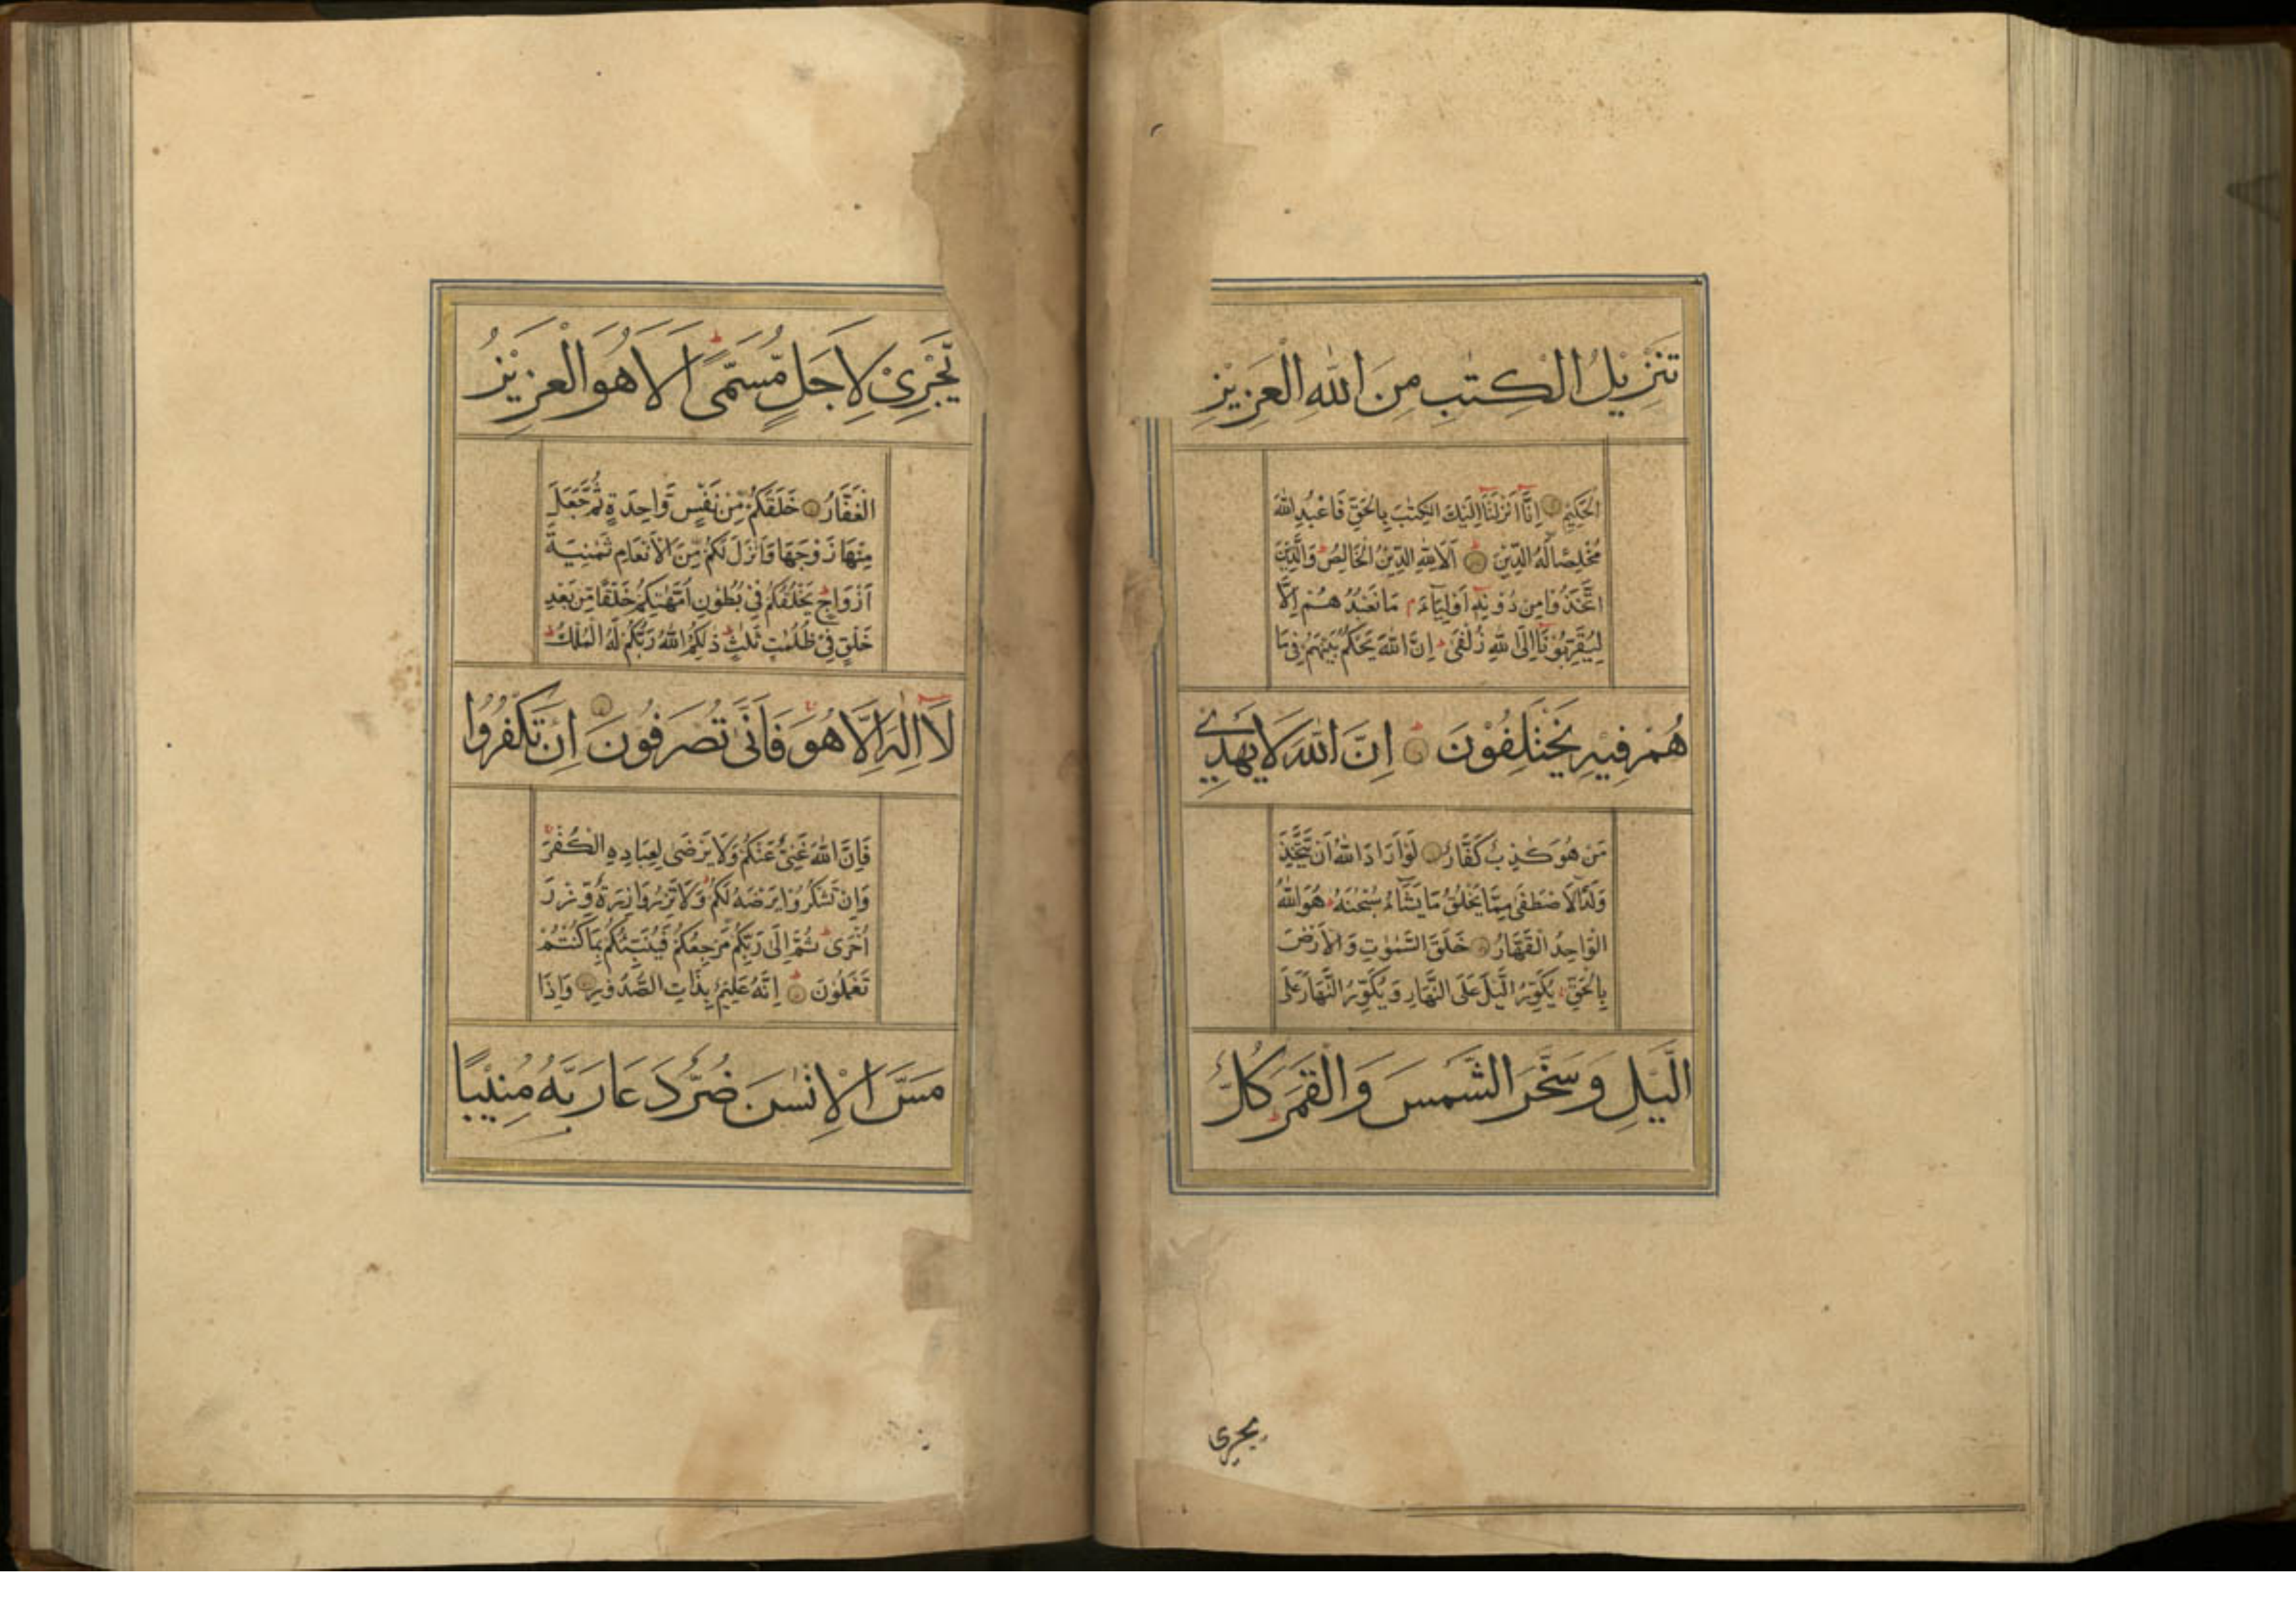 تَنْزِيْلُ الْكِتٰبِ مِنَ اللّٰهِ الْعَزِيْزِ
الْحَكِيْمِ اِنَّاۤ اَنْزَلْنَاۤ اِلَيْكَ الْكِتٰبَ بِالْحَقِّ فَاعْبُدِ اللّٰهَ
مُخْلِصًا لَّهُ الدِّيْنَ اَلَا لِلّٰهِ الدِّيْنُ الْخَالِصُ ؕ وَالَّذِيْنَ
اتَّخَذُوْا مِنْ دُوْنِهٖۤ اَوْلِيَآءَ ۘ مَا نَعْبُدُهُمْ اِلَّا
لِيُقَرِّبُوْنَاۤ اِلَى اللّٰهِ زُلْفٰى ؕ اِنَّ اللّٰهَ يَحْكُمُ بَيْنَهُمْ فِيْ مَا
هُمْ فِيْهِ يَخْتَلِفُوْنَ ؕ اِنَّ اللّٰهَ لَا يَهْدِيْ
مَنْ هُوَ كٰذِبٌ كَفَّارٌ لَوْ اَرَادَ اللّٰهُ اَنْ يَّتَّخِذَ
وَلَدًا لَّاصْطَفٰى مِمَّا يَخْلُقُ مَا يَشَآءُ سُبْحٰنَهٗ ؕ هُوَ اللّٰهُ
الْوَاحِدُ الْقَهَّارُ خَلَقَ السَّمٰوٰتِ وَالْاَرْضَ
بِالْحَقِّ ۚ يُكَوِّرُ الَّيْلَ عَلَى النَّهَارِ وَيُكَوِّرُ النَّهَارَ عَلَى
الَّيْلِ وَسَخَّرَ الشَّمْسَ وَالْقَمَرَ ؕ كُلٌّ
يجرى
يَّجْرِيْ لِاَجَلٍ مُّسَمًّى ؕ اَلَا هُوَ الْعَزِيْزُ
الْغَفَّارُ خَلَقَكُمْ مِّنْ نَّفْسٍ وَّاحِدَةٍ ثُمَّ جَعَلَ
مِنْهَا زَوْجَهَا وَاَنْزَلَ لَكُمْ مِّنَ الْاَنْعَامِ ثَمٰنِيَةَ
اَزْوَاجٍ ؕ يَخْلُقُكُمْ فِيْ بُطُوْنِ اُمَّهٰتِكُمْ خَلْقًا مِّنْ بَعْدِ
خَلْقٍ فِيْ ظُلُمٰتٍ ثَلٰثٍ ؕ ذٰلِكُمُ اللّٰهُ رَبُّكُمْ لَهُ الْمُلْكُ ؕ
لَاۤ اِلٰهَ اِلَّا هُوَ ۚ فَاَنّٰى تُصْرَفُوْنَ اِنْ تَكْفُرُوْا
فَاِنَّ اللّٰهَ غَنِيٌّ عَنْكُمْ وَلَا يَرْضٰى لِعِبَادِهِ الْكُفْرَ ۚ
وَاِنْ تَشْكُرُوْا يَرْضَهُ لَكُمْ ؕ وَلَا تَزِرُ وَازِرَةٌ وِّزْرَ
اُخْرٰى ؕ ثُمَّ اِلٰى رَبِّكُمْ مَّرْجِعُكُمْ فَيُنَبِّئُكُمْ بِمَا كُنْتُمْ
تَعْمَلُوْنَ ؕ اِنَّهٗ عَلِيْمٌ بِذَاتِ الصُّدُوْرِ وَاِذَا
مَسَّ الْاِنْسٰنَ ضُرٌّ دَعَا رَبَّهٗ مُنِيْبًا